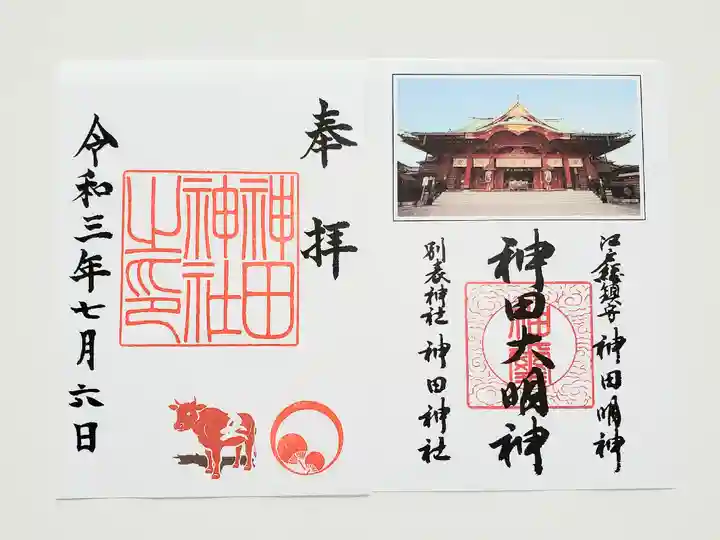 江戸総鎮守 神田明神
神田大明神
別表神社 神田神社
奉拝
神田
神社
之印
令和三年七月六日